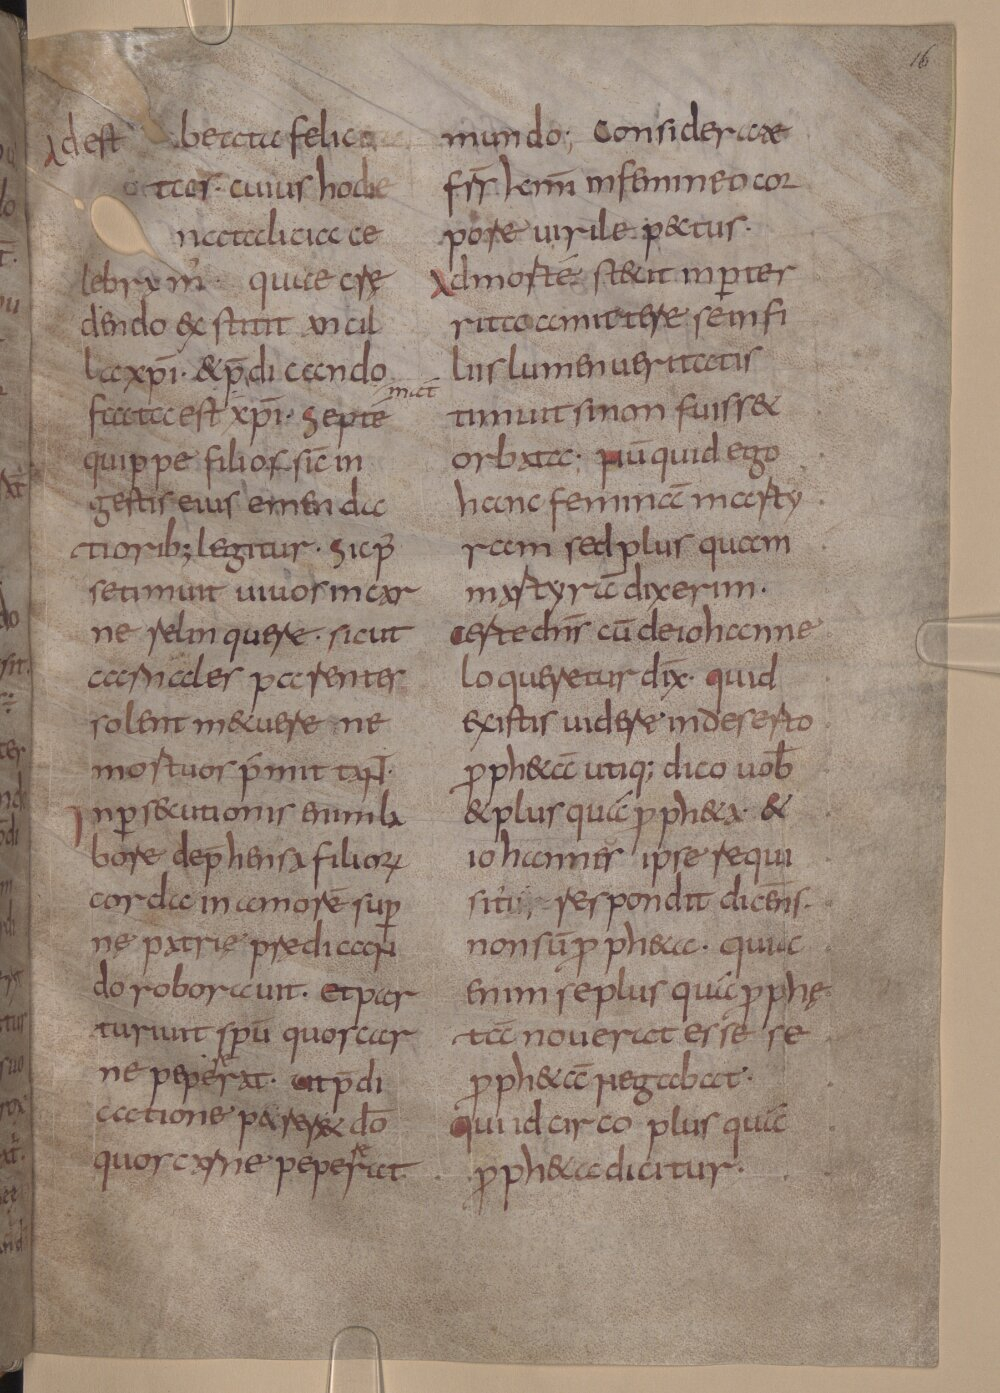 16
Adest beata felici
tas· cuius hodie
nataliciaʼ ce
lebramʼ· quae cre
dendo extitit ancil
la xp̄i· & p̄dicando
facta est xp̄i· Septē
quippe filios sic̄ in
gestis eius emenda
tiorib; legitur· Sic p̄
setimuit uiuos incar
ne relinquere· sicut
carnales parentes
solent metuere ne
mortuos p̄mittant·
Inp̄secutionis enim la
bore dep̄hensa filiorum
corda in amore sup̄
ne patrię predican
do roborauit· et par
turiuit sp̄u quoscar
ne pepererat· ut p̄di
catione pareret dō
quoscarne pepererat·
mundo; Considerate
fr̄s k̄mi infemineo cor
pore uirile pectus·
Admortē stetit inper
rita amittere seinfi
lius lumen ueritatis
timuit sinon fuisset
orbata· Nū quid ego
hanc feminā marty
ram sed plus quam
martyrā dixerim·
certe dn̄s cū deiohanne
loqueretur dix̄· quid
existis uidere indeserto
p̄phetā utiq; dico uob̄
& plus quā p̄pheta· &
iohannes ipse requi
situs respondit dicens·
non sū p̄pheta· quia
enim seplus quā p̄phę
tā nouerat esse se
p̄phetā negabat·
Quid circo plus quā
p̄pheta dicitur·